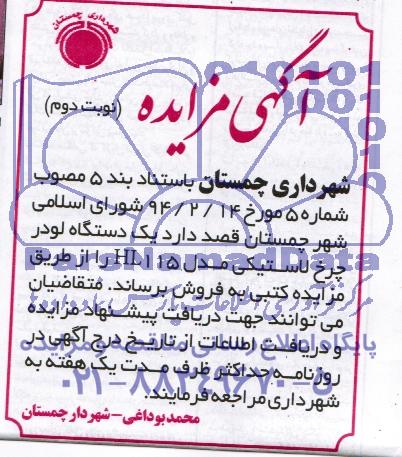 شهرداری چمستان
آگهی مزایده
(نوبت دوم)
شهرداری چمستان باستناد بند ۵ مصوب
شماره ۵ مورخ ۹۴/۲/۱۴ شورای اسلامی
شهر چمستان قصد دارد یک دستگاه لودر
چرخ لاستیکی مدل HL115 را از طریق
مزایده کتبی به فروش برساند. متقاضیان
می توانند جهت دریافت پیشنهاد مزایده
و دریافت اطلاعات از تاریخ درج آگهی در
روزنامه حداکثر ظرف مدت یک هفته به
شهرداری مراجعه فرمایند.
محمد بوداغی - شهردار چمستان
ParsNamadData
۰۲۱-۸۸۳۴۹۶۷۰